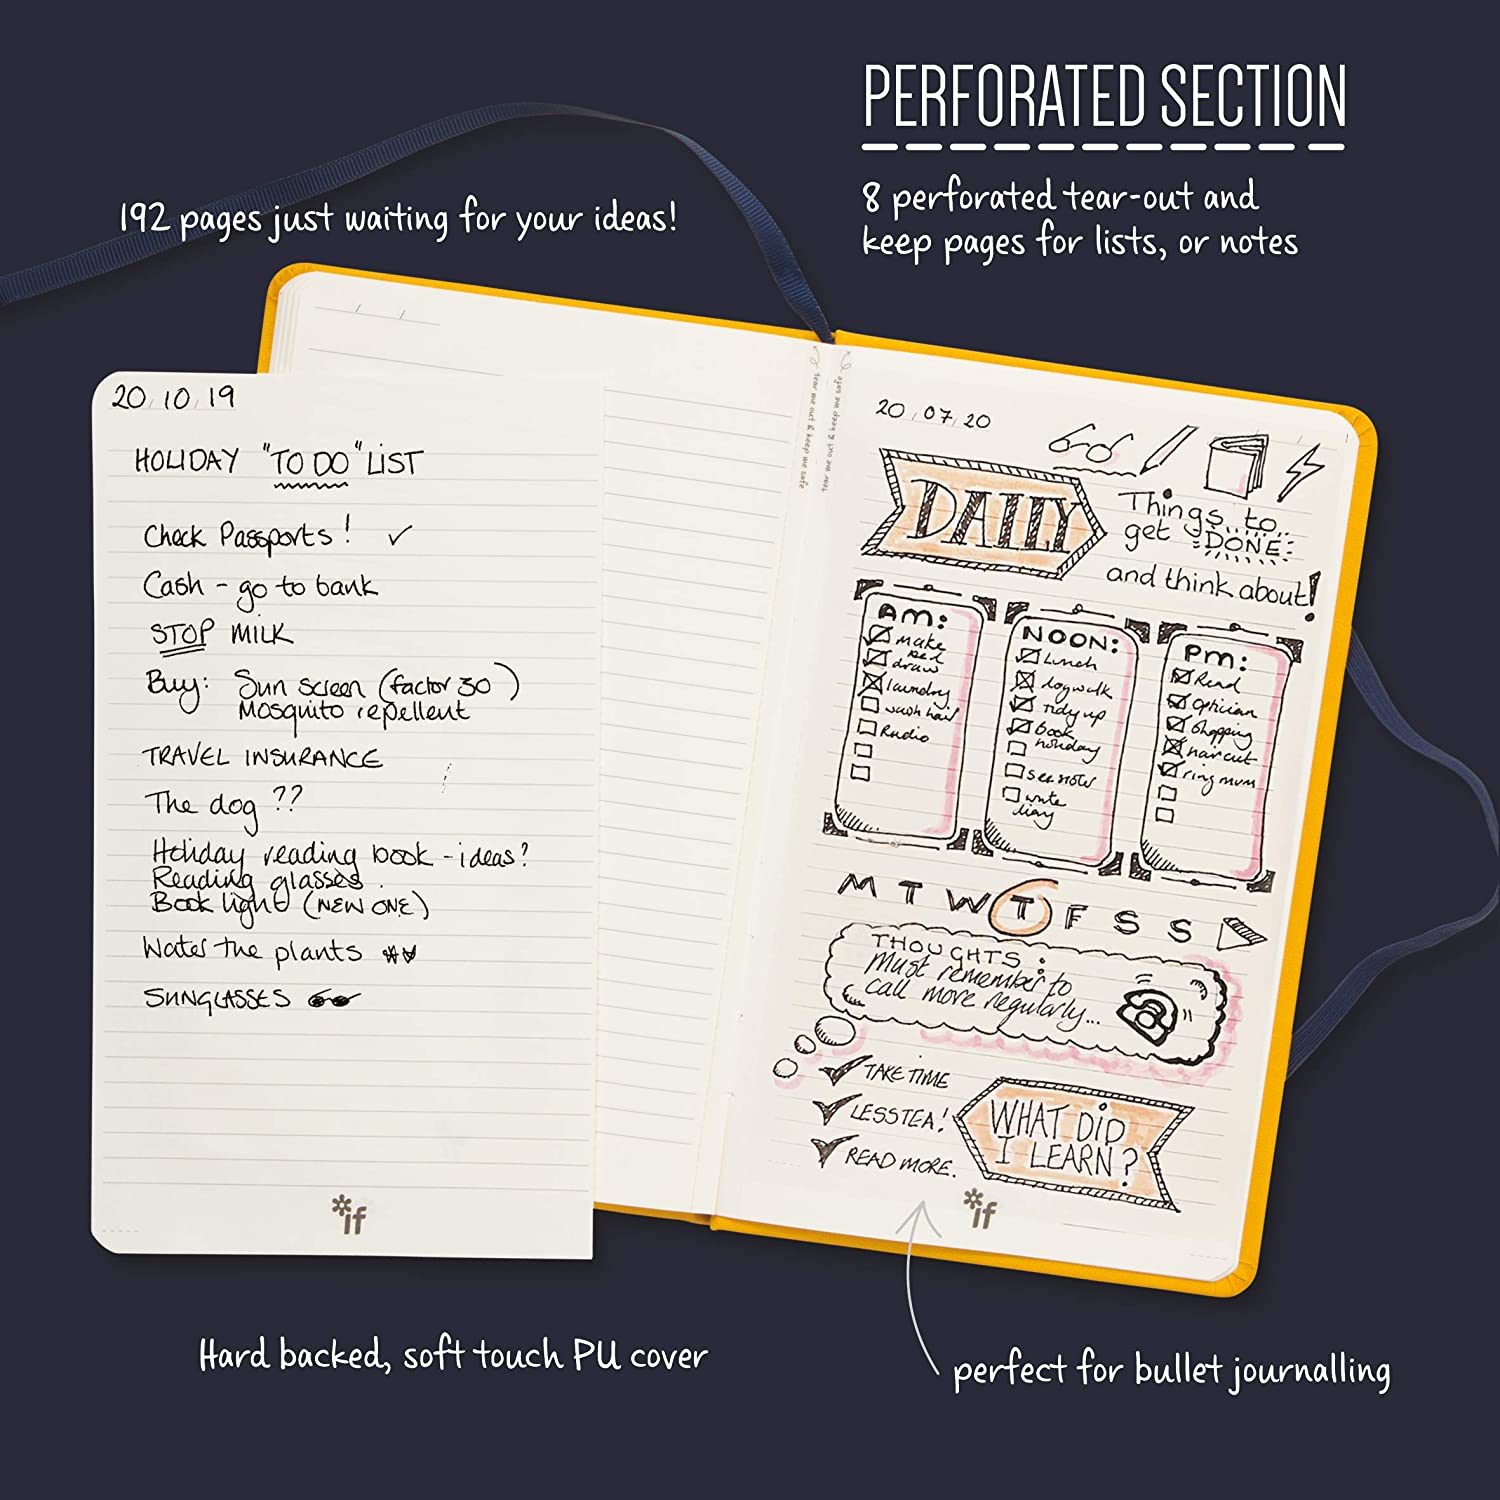 PERFORATED SECTION
8 perforated tear-out and
keep pages for lists, or notes
192 pages just waiting for your ideas!
tear me out & keep me safe
tear me out & keep me safe
20/10/19
HOLIDAY "TO DO" LIST
Check Passports! ✓
Cash - go to bank
STOP MILK
Buy: Sun screen (factor 30)
Mosquito repellent
TRAVEL INSURANCE
The dog ??
Holiday reading book - ideas?
Reading glasses.
Book light (NEW ONE)
Water the plants
SUNGLASSES
*if
20/07/20
DAILY
Things to
get DONE
and think about!
AM:
make
bed
draw
laundry
wash hair
Radio
NOON:
Lunch
dogwalk
Tidy up
Book
holiday
see sister
write
diary
PM:
Read
Optician
Shopping
haircut
ring mum
M T W T F S S
THOUGHTS:
Must remember to
call more regularly...
TAKE TIME
LESS TEA!
READ MORE.
WHAT DID
I LEARN?
*if
Hard backed, soft touch PU cover
perfect for bullet journalling